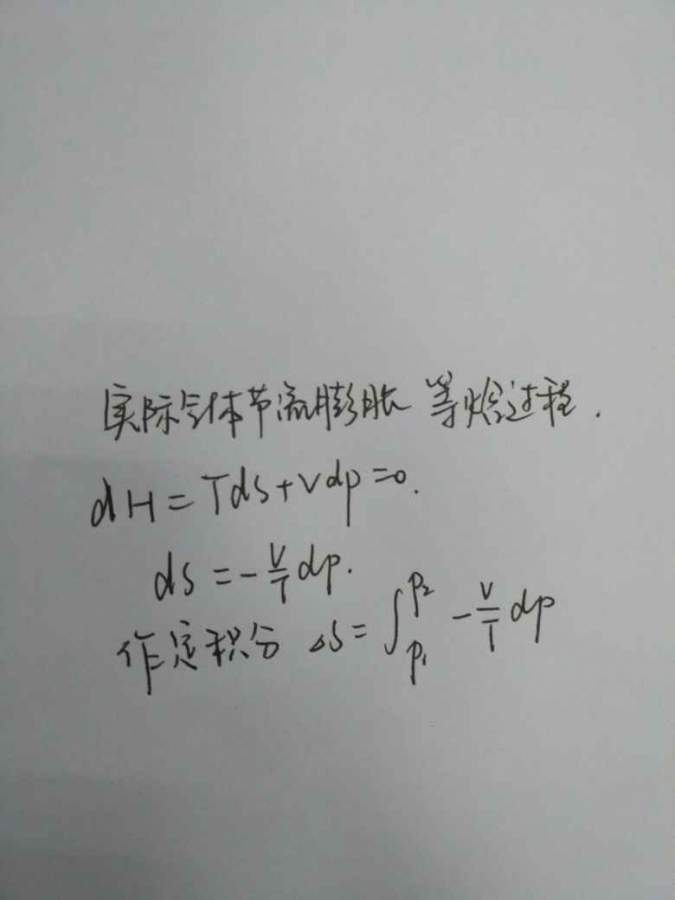 实际气体节流膨胀 等焓过程.
dH=Tds+Vdp=0.
ds=-V/T dp.
作定积分 ΔS=∫_{p1}^{p2} -V/T dp